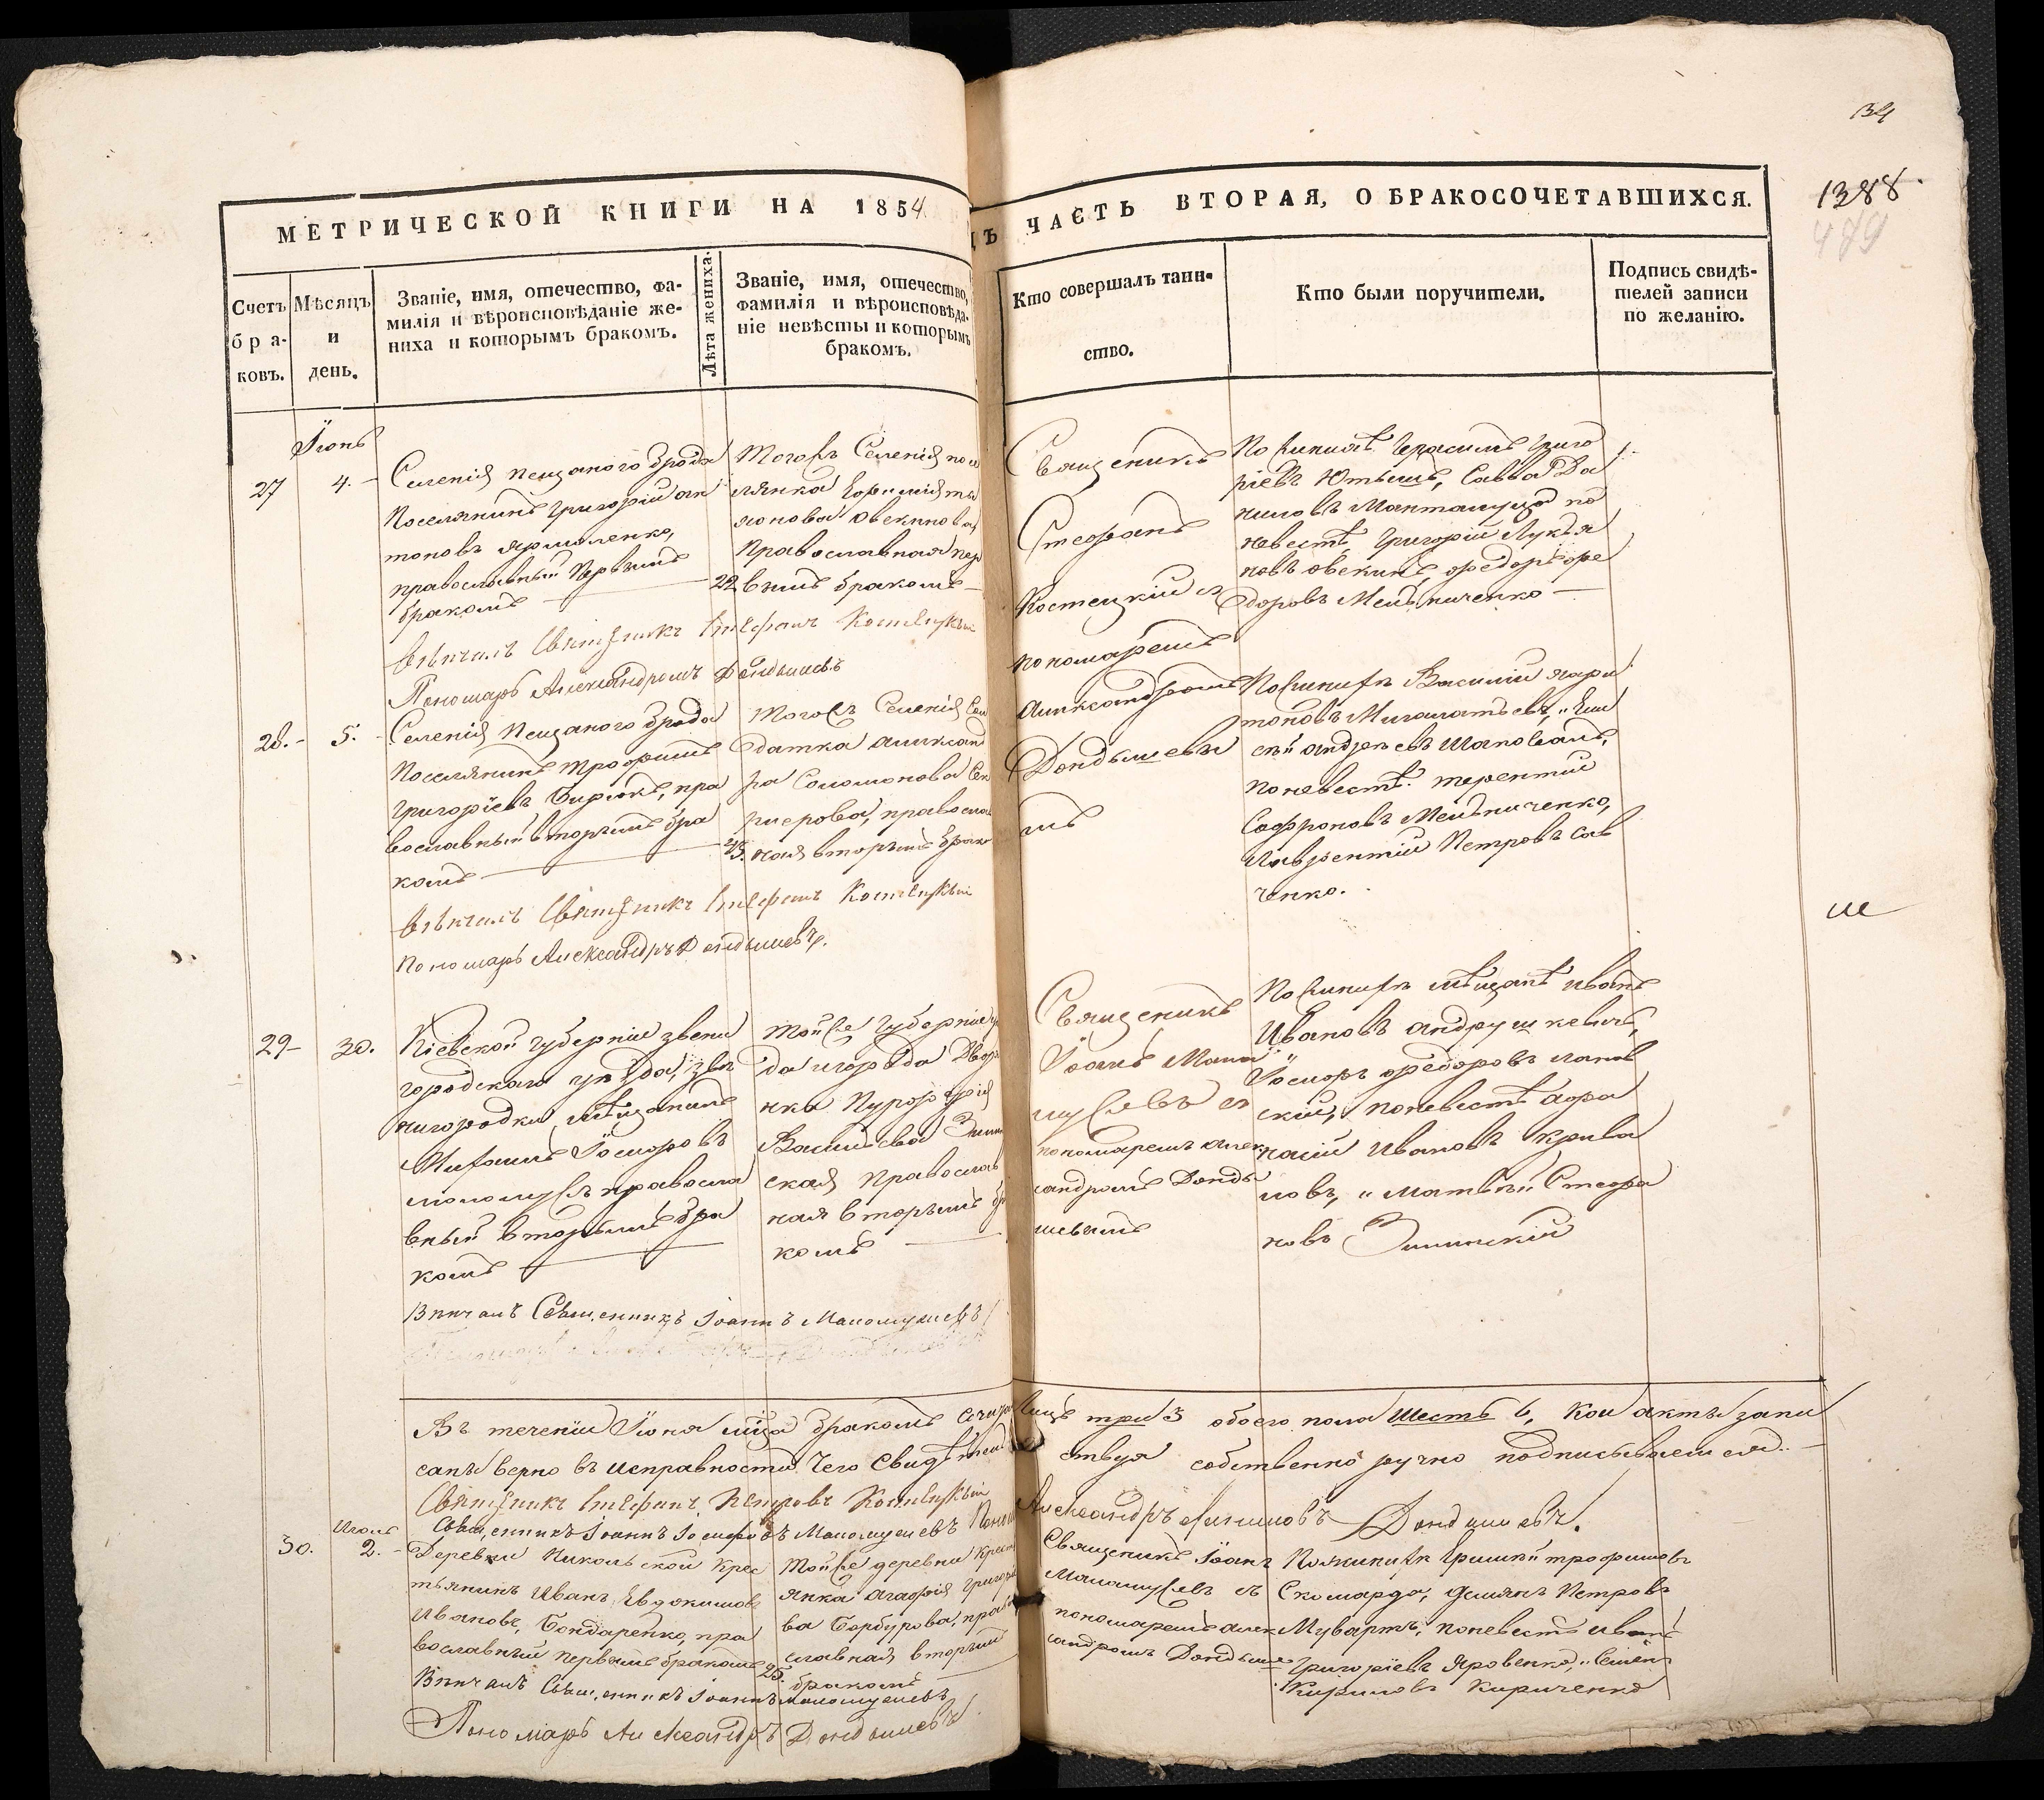 34
1388
479
МЕТРИЧЕСКОЙ КНИГИ НА 1854
ЧАСТЬ ВТОРАЯ, О БРАКОСОЧЕТАВШИХСЯ.
Счетъ
бра-
ковъ.
Мѣсяцъ
и
день.
Званіе, имя, отечество, фа-
милія и вѣроисповѣданіе же-
ниха и которымъ бракомъ.
Лѣта жениха.
Званіе, имя, отечество,
фамилія и вѣроисповѣда-
ніе невѣсты и которымъ
бракомъ.
Кто совершалъ таин-
ство.
Кто были поручители.
Подпись свидѣ-
телей записи
по желанію.
Іюнь
27
4.
Селенія Песчаного Брода
Поселянинъ Григорій Ан
тоновъ Ярмоленко,
православный Первымъ
бракомъ
22
Тогожъ Селенія посе
лянка
Овекинова,
Православная пер
вымъ бракомъ
Священникъ
Стефанъ
Костецкій съ
пономаремъ
Александромъ
Дондышевы
мъ
По женихѣ Герасимъ Григо
ріевъ Ютышъ, Савва Да
ниловъ по
невестѣ, Григорій Лукья
новъ Овекинъ, Федоръ Фе
доровъ Мельниченко
Вѣнчалъ Священникъ Стефанъ Костецкій
Пономарь Александромъ Дондышевъ
28.
5.
Селенія Песчаного Брода
Поселянинъ Трофимъ
Григоріевъ Бирюкъ, пра
вославный вторымъ бра
комъ
25.
Тогожъ Селенія Сол
датка Александ
ра Соломонова
православ
ная вторымъ брако
По женихѣ Василій Хари
тоновъ
сѣй Андреевъ Шаповалъ,
по невестѣ: Терентій
Софроновъ Мельниченко,
Лаврентій Петровъ Сав
ченко.
Вѣнчалъ Священникъ Стефанъ Костецкій
Пономарь Александръ Дондышевъ.
29
30.
Кіевской губерніи Звени
городскаго уѣзда, Зве
нигородки мѣщанинъ
Михаилъ Іосифовъ
православ
вный вторымъ бра
комъ
Тойже губерніи
да игорода Двор
нка
Васильева
ская Православ
ная вторымъ бра
комъ
Священникъ
Іоанъ Мало
мужевъ съ
пономаремъ Алек
сандромъ Донды
шевымъ
По женихѣ мѣщане Иванъ
Ивановъ Андрушкевичъ,
Іосифъ Федоровъ
скій, по невестѣ Афа
насій Ивановъ
ловъ, и Матвѣй Стефа
новъ Зилинскій
Вѣнчалъ Священникъ Іоаннъ Маломужевъ
Въ теченіи Іюня м-ца бракомъ
три 3 обоего пола Шесть 6, кои акты запи
саны верно въ исправности Чего Свидѣтель
ствуя собственно ручно подписываемся.
Священникъ Стефанъ Петровъ Костецкій
Священникъ Іоаннъ Іосифовъ Маломужевъ
Александръ Дондышевъ.
Июль
30.
2.
Деревни Никольской Крес
тьянинъ Иванъ Евдокимовъ
Ивановъ, Бондаренко, пра
вославный первымъ бракомъ
25.
Тойже деревни Крест
янка Агафія Григорье
ва Барбурова, право
славная вторымъ
бракомъ
Священникъ Іоанъ
Маломужевъ съ
пономаремъ Алек
сандромъ Дондыше
По женихѣ Трофимовъ
Скомарда, Демянъ Петровъ
по невестѣ Иванъ
Григоріевъ Яровенко, и Семенъ
Кириловъ Кириченко
Вѣнчалъ Священникъ Іоаннъ Маломужевъ
Пономарь Александръ Дондышевъ